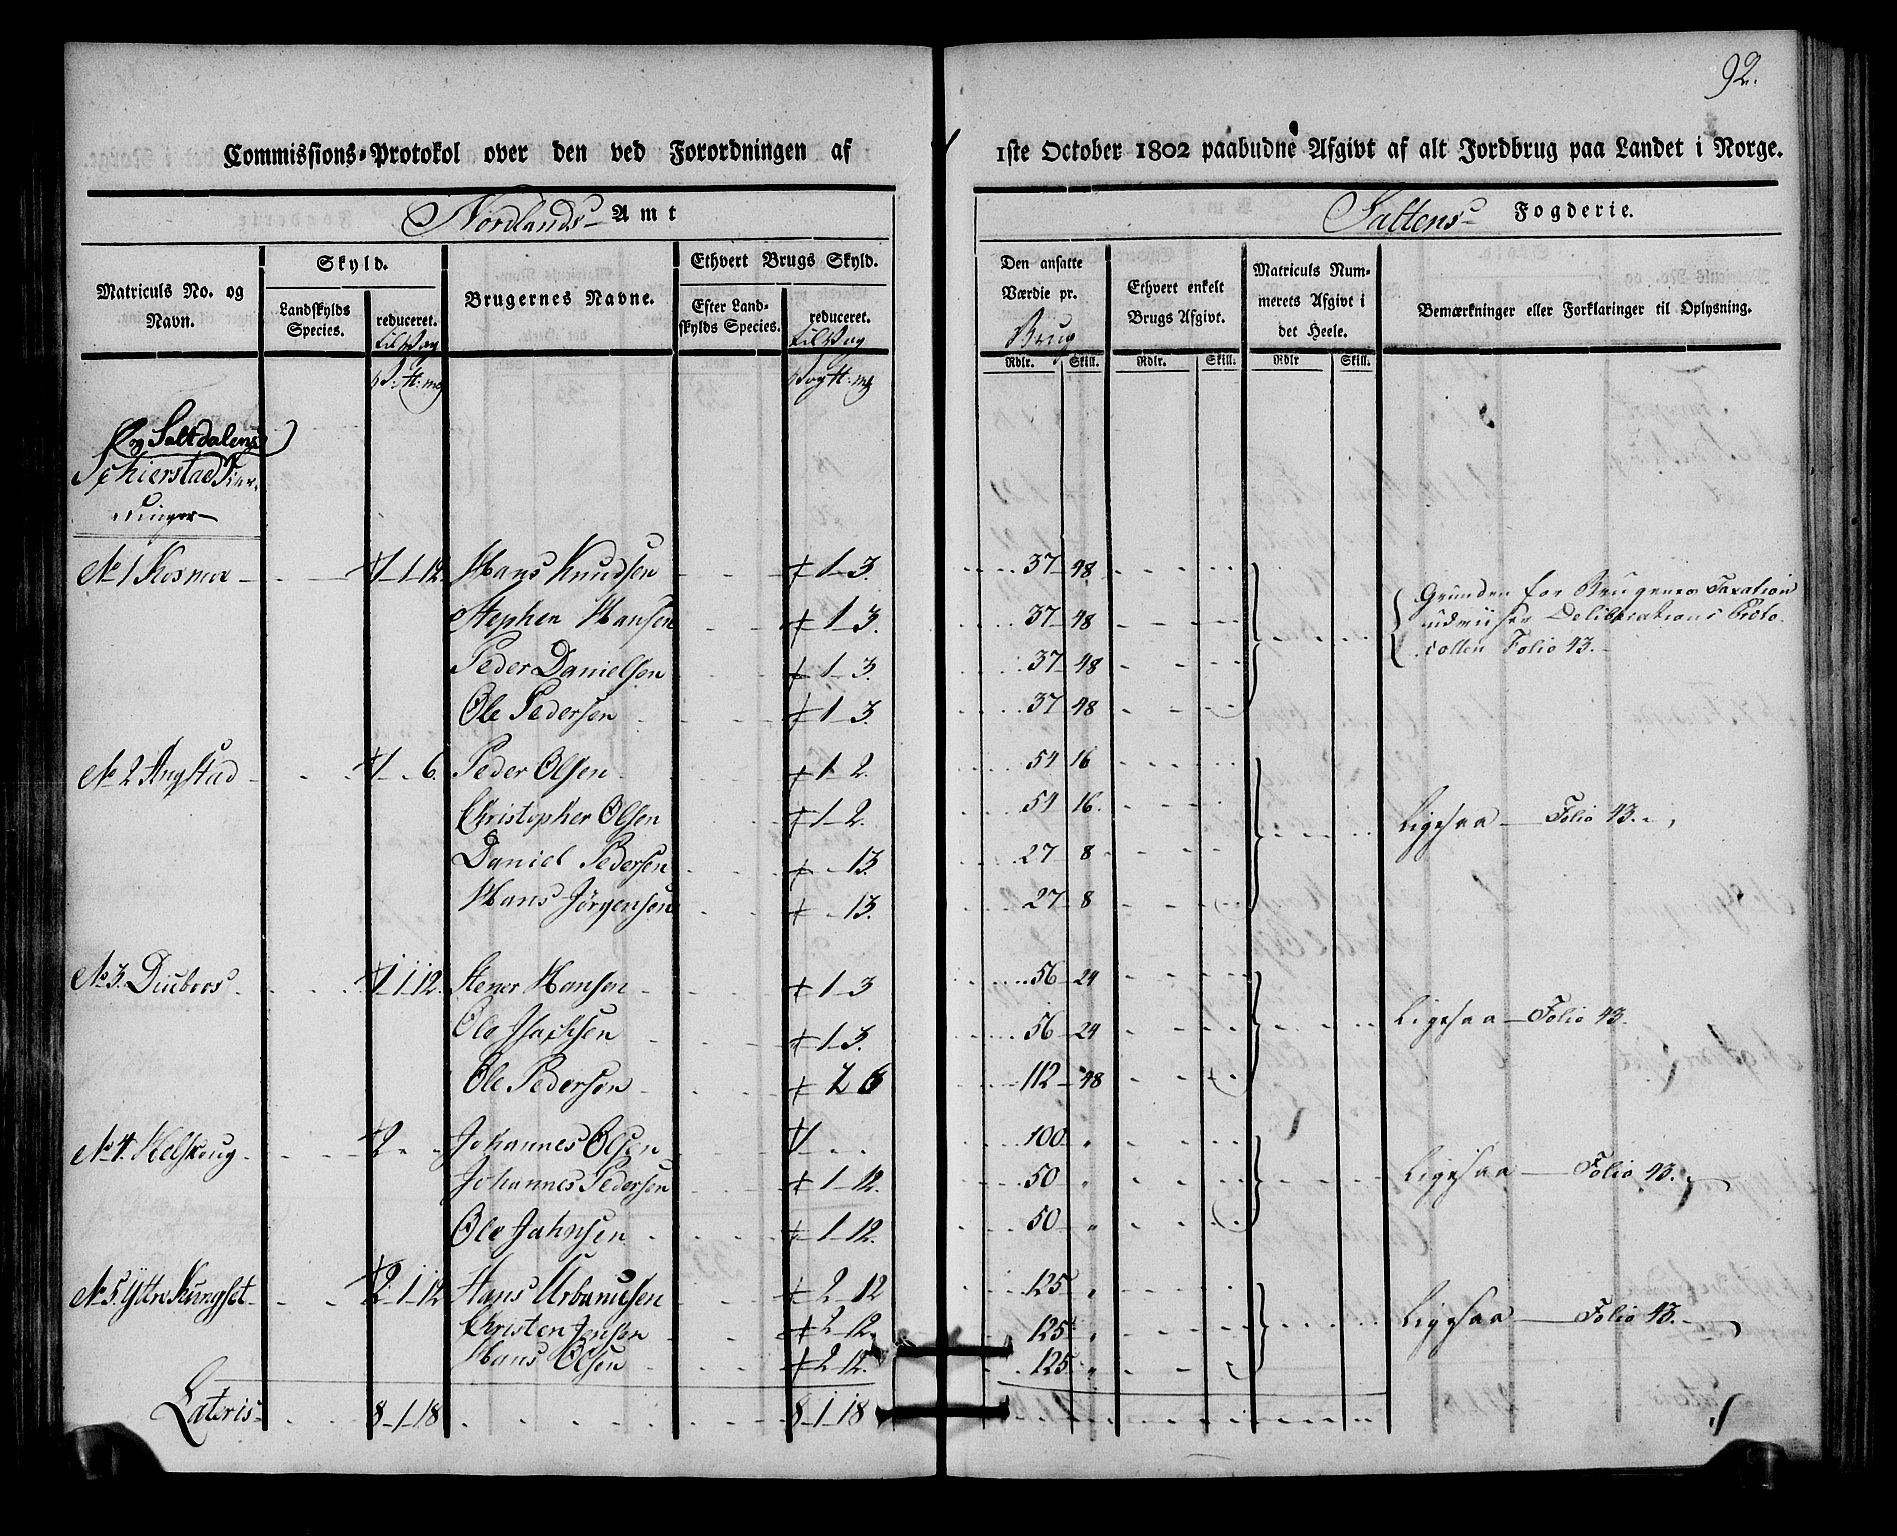 92.
Commissions-Protokol over den ved Forordningen af 1ste October 1802 paabudne Afgivt af alt Jordbrug paa Landet i Norge.
Nordlands Amt
Saltens Fogderie.
Matriculs No. og Navn.
Skyld.
Landskylds Species.
reduceret.
til Vog
Brugernes Navne.
Ethvert Brugs Skyld.
Efter Landskylds Species.
reduceret.
til Vog
Den ansatte Værdie pr.
Brug
Rdlr. Skill.
Ethvert enkelt Brugs Afgivt.
Rdlr. Skill.
Matriculs Nummerets Afgivt i det Heele.
Rdlr Skill.
Bemærkninger eller Forklaringer til Oplysning.
Saltdalens
No 1 Kosmoe 1-1-12. Hans Knudsen 1-3. 37-48
Stephen Hansen 1-3. 37-48
Peder Danielsen 1-3. 37-48
Ole Pedersen 1-3. 37 48
Grunden for Brugenes Taxation
udviiser Deliberations Proto-
collen Folio 43.
No 2 Angstad 1 - 6. Peder Olsen 1-2. 54 16
Christopher Olsen 1-2. 54 16.
Daniel Pedersen - 13. 27-8
Hans Jörgensen - 13. 27-8
Ligesaa - Folio 43.
No 3. Diubvos 1-1-12. Stener Hansen 1-3 56-24
Ole Isachsen 1-3. 56-24
Ole Pedersen 2 6 112-48
Ligesaa - Folio 43.
No 4. Helskoug 2 - - Johannes Olsen 1 - - 100 "
Johannes Pedersen 1-12. 50 "
Ole Jahnsen 1-12. 50 "
Ligesaa - Folio 43.
No 5. Yttre Kungset 2-1-12 Hans Urbanusen 2-12 125 "
Christen Jensen 2-12. 125 "
Hans Olsen 2-12. 125 "
Ligesaa - Folio 43.
Lateris 8-1-18 8-1-18